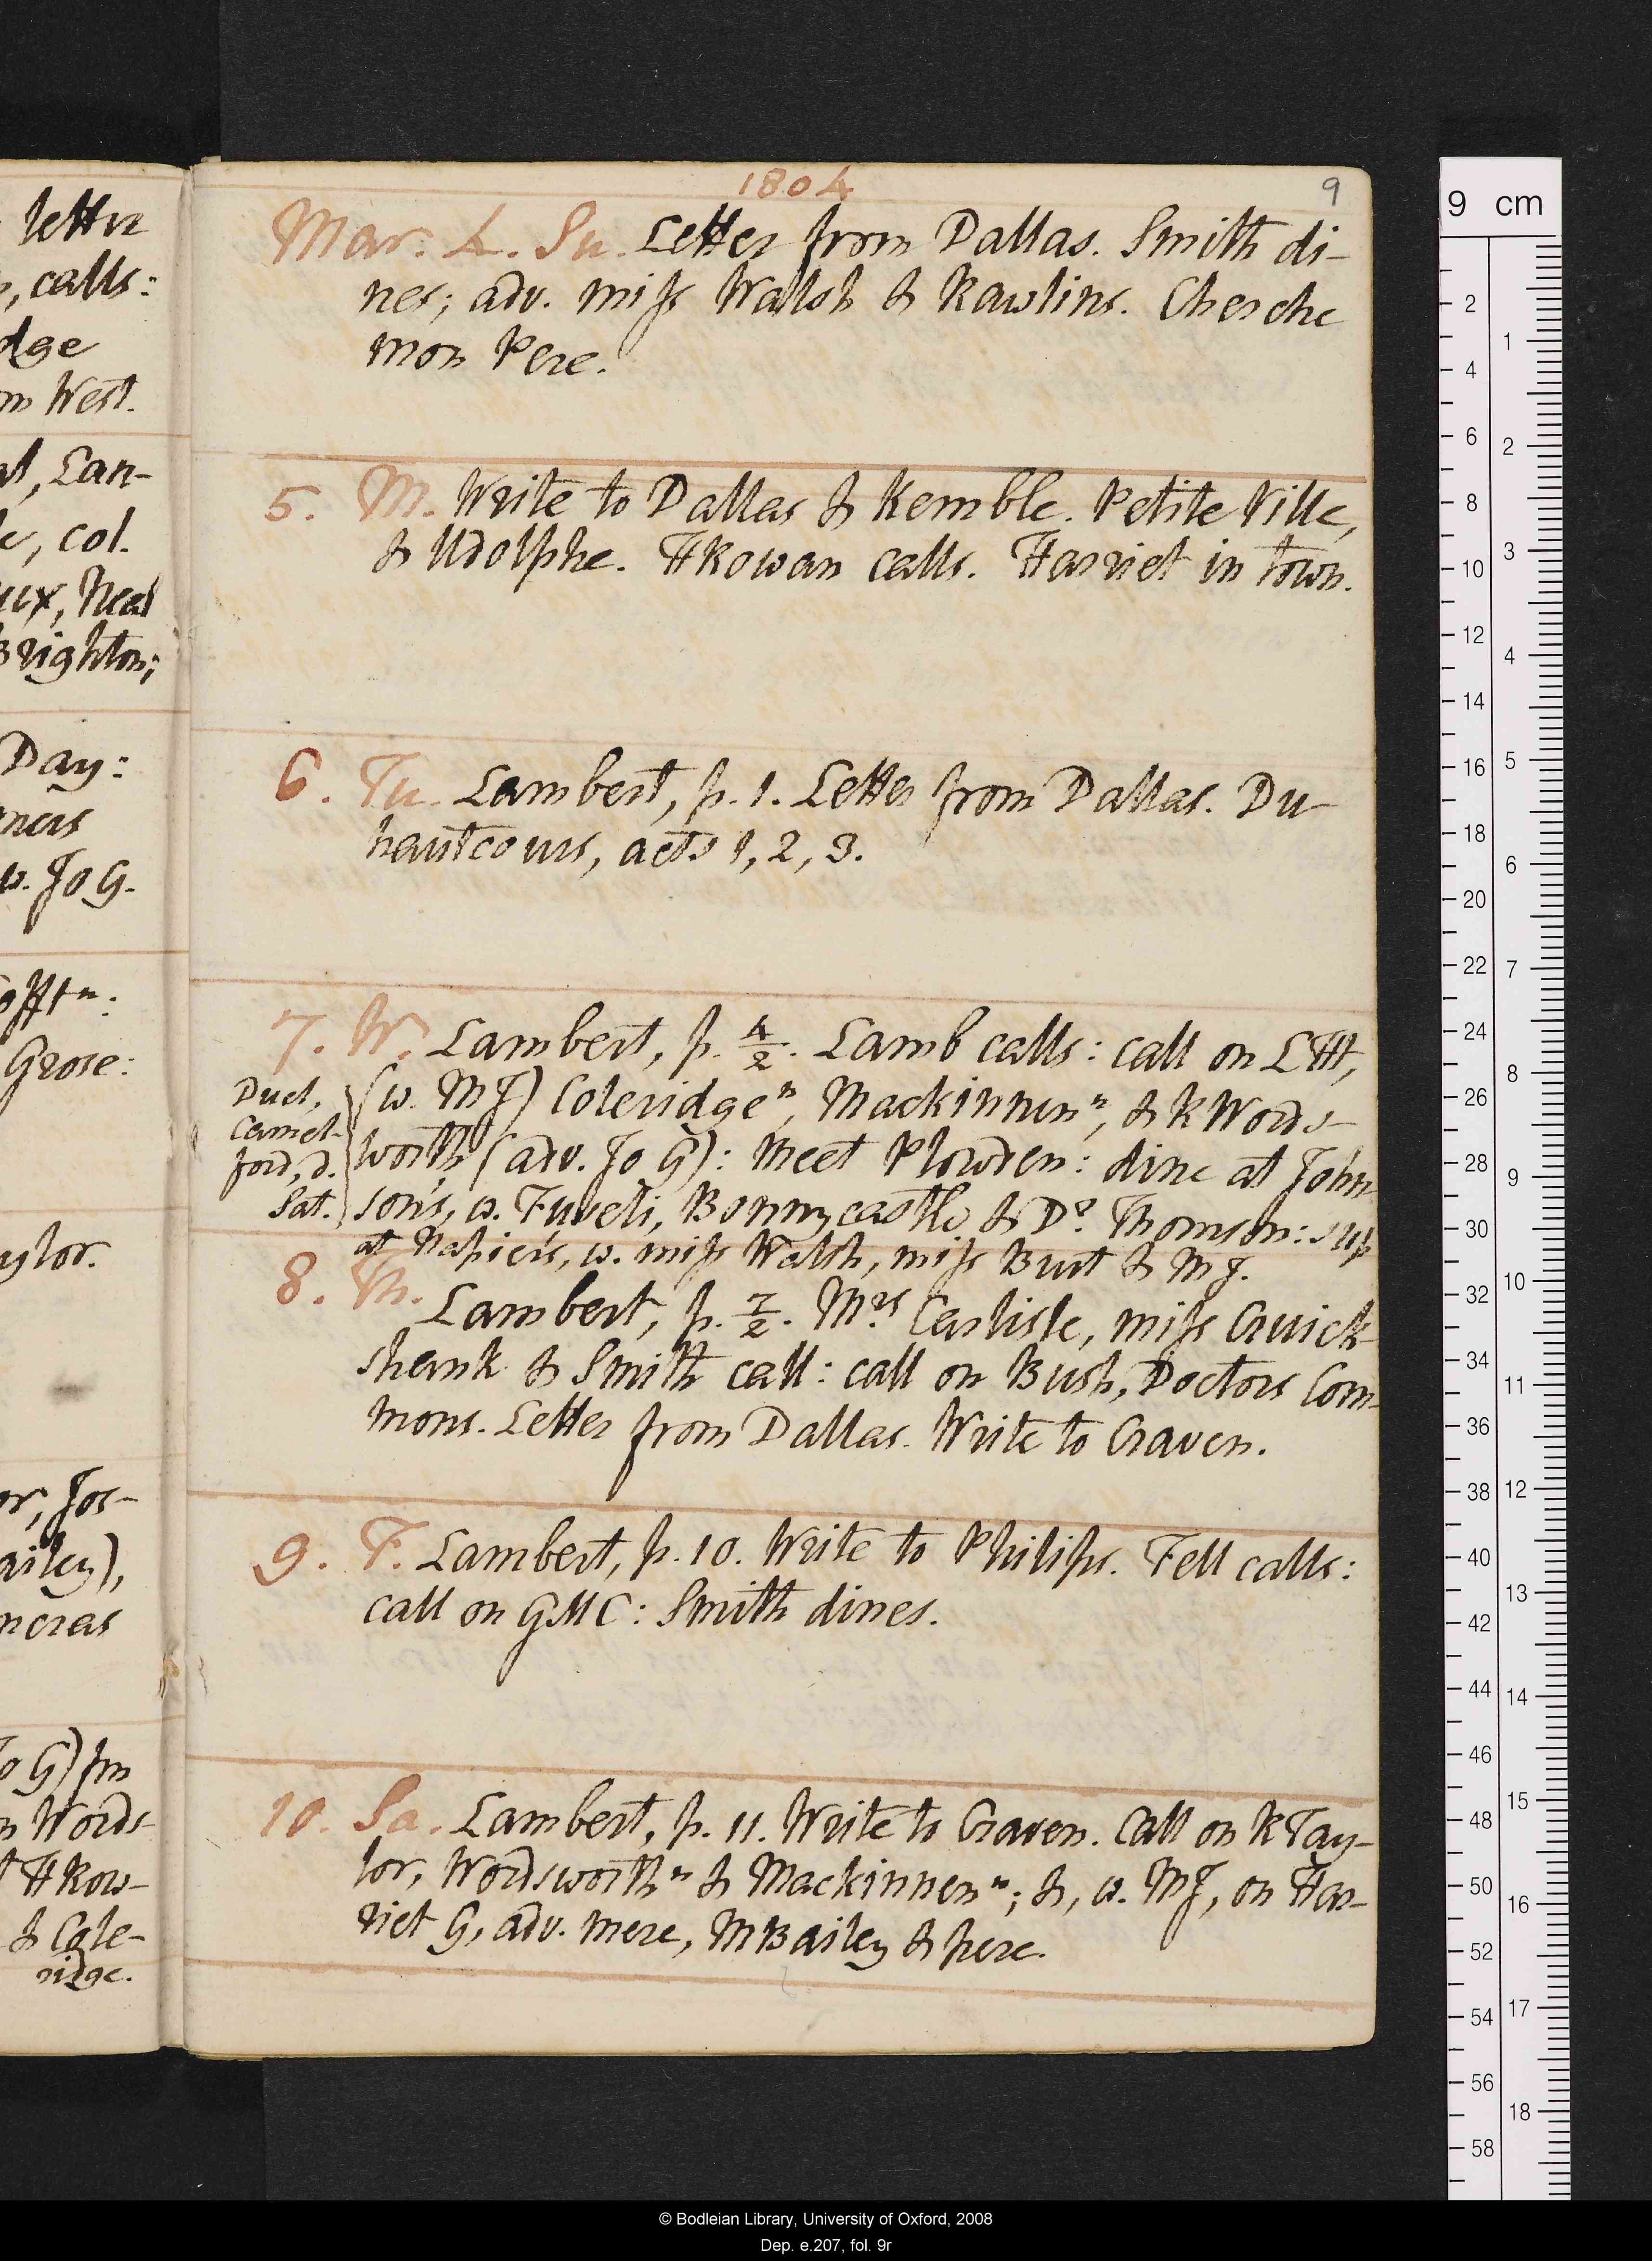 letter
, calls:
dge
m West.
al, Lan-
e, col.
ux, Neal
Brighton;
Day:
ners
w. Jo G.
Grose:
ylor.
or, Jos-
ailey),
ncras
o G) fm
n Words-
HRow-
& Cole-
ridge.
1804
9
Mar. 4. Su. Letter from Dallas. Smith di-
nes; adv. miss Walsh & Rawlins. Cherche
mon Pere.
5. M. Write to Dallas & Kemble. Petite Ville,
& Udolphe. HRowan calls. Harriet in town.
6. Tu. Lambert, p. 1. Letter from Dallas. Du-
hautcours, acts 1, 2, 3.
7. W. Lambert, p. 4/2. Lamb calls: call on LHt,
(w. MJ) Coleridge ⁿ, Mackinnen ⁿ, & R Words-
worth (adv. Jo G): meet Plowden: dine at John-
son's, w. Fuseli, Bonnycastle & Dr. Thomson: sup
at Napier's, w. miss Walsh, miss Burt & MJ.
Duel,
Camel-
ford, d.
Sat.
8. Th. Lambert, p. 7/2. Mrs Carlisle, miss Cruick-
shank & Smith call: call on Bush, Doctors Com-
mons. Letter from Dallas. Write to Craven.
9. F. Lambert, p. 10. Write to Philips. Fell calls:
call on GMC: Smith dines.
10. Sa. Lambert, p. 11. Write to Craven. Call on R Tay-
lor, Wordsworth ⁿ & Mackinnen ⁿ; &, w. MJ, on Har-
riet G, adv. mere, M Bailey & pere.
9 cm
2
4
6
8
10
12
14
16
18
20
22
24
26
28
30
32
34
36
38
40
42
44
46
48
50
52
54
56
58
1
2
3
4
5
6
7
8
9
10
11
12
13
14
15
16
17
18
© Bodleian Library, University of Oxford, 2008
Dep. e.207, fol. 9r